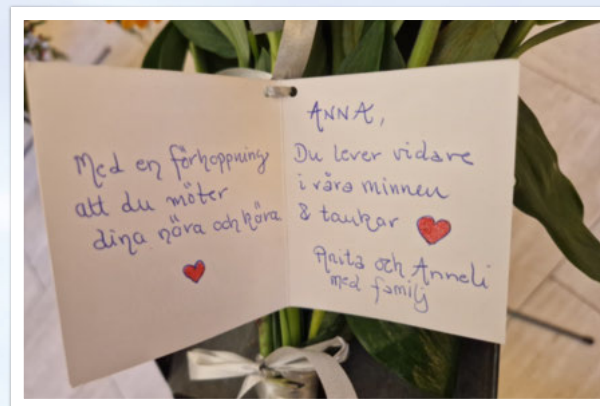 Med en förhoppning
att du möter
dina nära och kära
ANNA,
Du lever vidare
i våra minnen
& tankar
Anita och Anneli
med familj